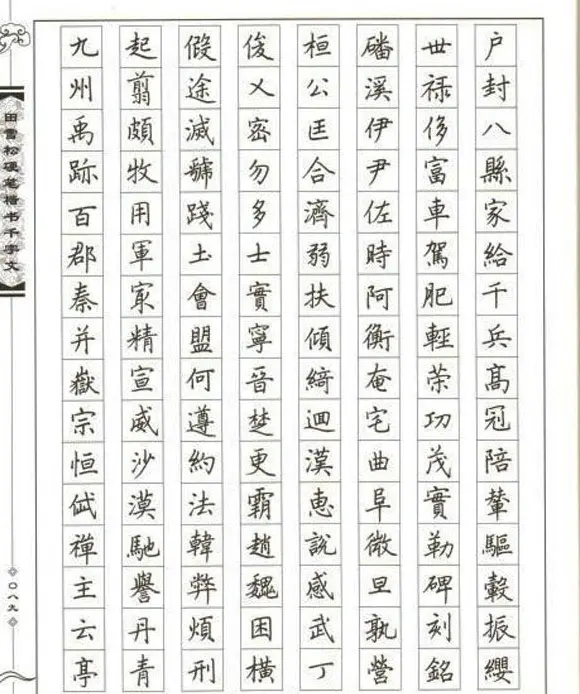 户封八縣家給千兵高冠陪輦驅轂振纓
世禄侈富車駕肥輕荣功茂實勒碑刻銘
磻溪伊尹佐時阿衡奄宅曲阜微旦孰營
桓公匡合濟弱扶傾綺迴漢惠說感武丁
俊乂密勿多士實寧晉楚更霸趙魏困橫
假途滅虢踐土會盟何遵約法韓弊煩刑
起翦頗牧用軍冣精宣威沙漠馳譽丹青
九州禹跡百郡秦并嶽宗恒岱禪主云亭
田雪松硬笔楷书千字文
〇八九